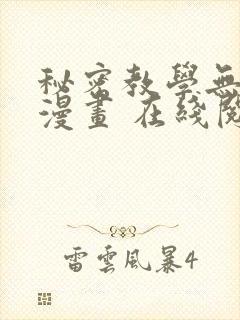 秘密教學無
漫畫 在綫閱
雷雲風暴4